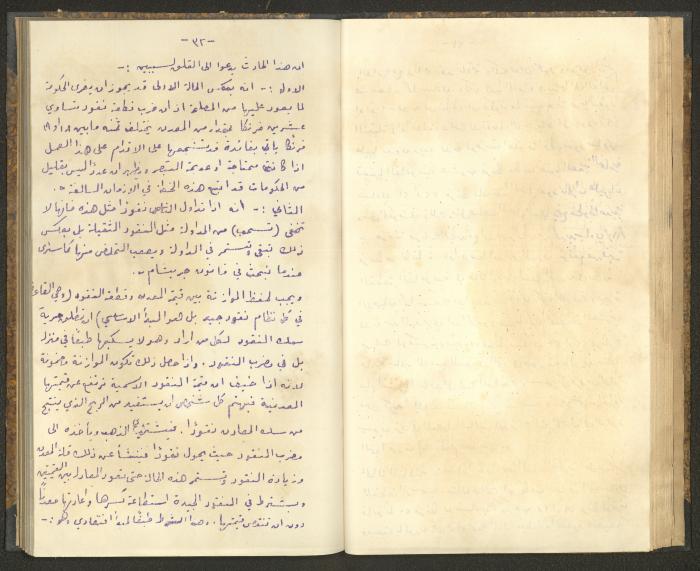 -٣٢-
ان هذا الحادث يدعوا الى القلق لسببين :-
الاول :- انه بعكس الحالة الاولى قد يجوز ان يغري الحكومة
لما يعود عليها من المصلحة اذ ان ضرب قطعة نقود تساوي
عشرين فرنكا بمقدار من المعدن يختلف ثمنه ما بين ١٨ او ١٩
فرنكا يأتي بفائدة قد تشجعها على الاقدام على هذا العمل
اذا كانت محتاجة او عديمة التبصر ويظهر ان عددا ليس بقليل
من الحكومات قد اتبع هذه الخطة في الازمان السالفة .
الثاني :- انه اذا تداول الناس نقودا مثل هذه فانها لا
تختفي (تنسحب) من المداولة مثل النقود الثقيلة بل بعكس
ذلك تبقى وتستمر في المداولة ويصعب التخلص منها كما سنرى
عندما نبحث في قانون جريشام .
ويجب لحفظ الموازنة بين قيمة المعدن وقطعة النقود (وهي القاعدة
في كل نظام نقود جيد بل هو المبدأ الاساسي) ان تطلق حرية
سك النقود لكل من اراد وهو لا يسكها طبعا في منزله
بل في مضرب النقود . واذا حصل ذلك تكون الموازنة مضمونة
لانه اذا خيف ان قيمة النقود الاسمية ترتفع عن قيمتها
المعدنية فيهتم كل شخص ان يستفيد من الربح الذي ينتج
من سك المعادن نقودا . فيشتري الذهب ويأخذه الى
مضرب النقود حيث يحول نقودا فينشأ عن ذلك قلة المعدن
وزيادة النقود وتستمر هذه الحال حتى تعود المعادلة بين القيمتين
ويشترط في النقود الجيدة استطاعة كسرها واعادتها معدنا
دون ان تنقص قيمتها . وهذا الشرط طبقا لمبدأ اقتصادي وهو :-